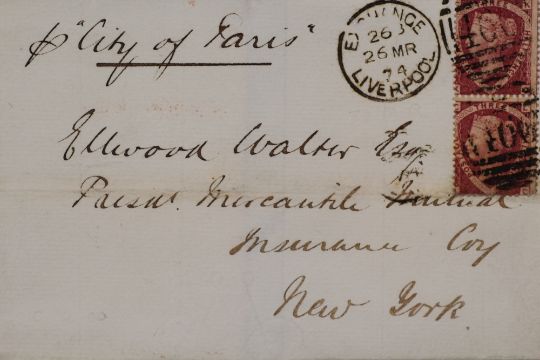 p "City of Paris"
EXCHANGE
26 MR
74
LIVERPOOL
THREE
Ellwood Walter Esq
Presdt. Mercantile Mutual
Insurance Coy
New York